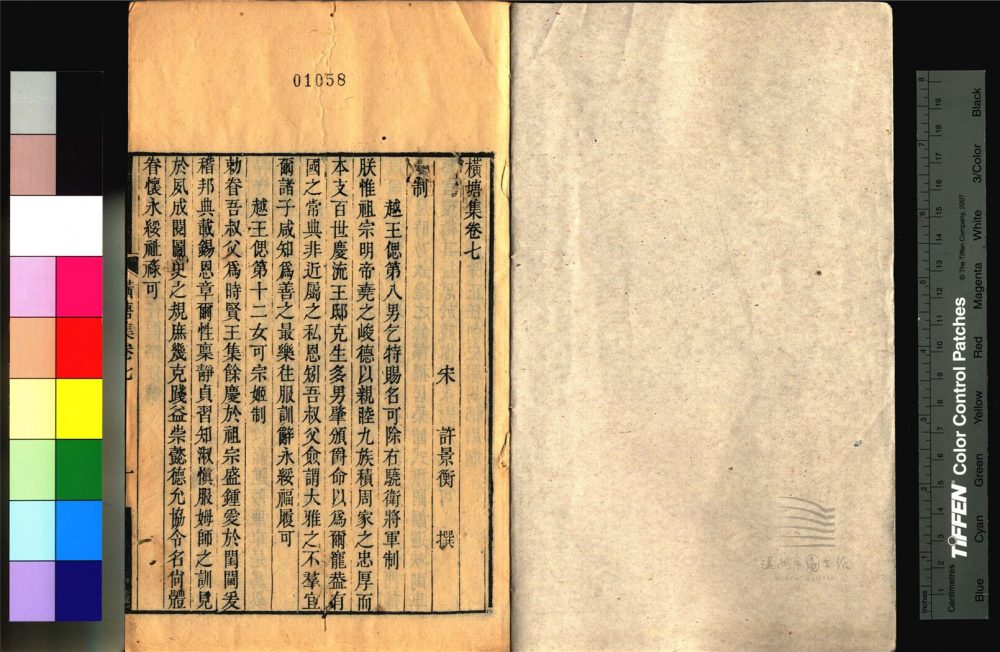 01058
橫塘集卷七
宋 許景衡 撰
制
越王偲第八男乞特賜名可除右驍衛將軍制
朕惟祖宗明帝堯之峻德以親睦九族積周家之忠厚而
本支百世慶流王邸克生多男肇頒爵命以爲爾寵葢有
國之常典非近屬之私恩矧吾叔父僉謂大雅之不羣宜
爾諸子咸知爲善之最樂往服訓辭永綏福履可
越王偲第十二女可宗姬制
勅眷吾叔父爲時賢王集餘慶於祖宗盛鍾愛於閨閫爰
稽邦典載錫恩章爾性稟靜貞習知淑愼服姆師之訓見
於夙成閱圖史之規庶幾克踐益崇懿德允協令名尙體
眷懷永綏祉祿可
橫塘集卷七
一
Inches
Centimetres
TIFFEN Color Control Patches
© The Tiffen Company, 2007
Blue
Cyan
Green
Yellow
Red
Magenta
White
3/Color
Black